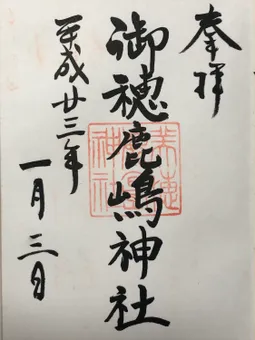 奉拝
御穂鹿嶋神社
平成廿三年
一月三日